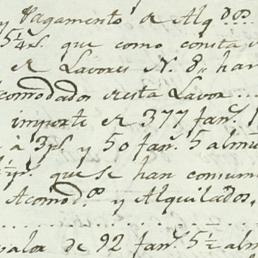 y Pagamento de Alq.dos
5¼ rs. que como consta
de Lavores N. 8,, han
comodados en esta Lavor....
importe de 377 fan.s
à 3ps. y 50 fan.s 5 almu
que se han consum
Acomod.os y Alquilados,
valor de 92 fan.s 5½ alm